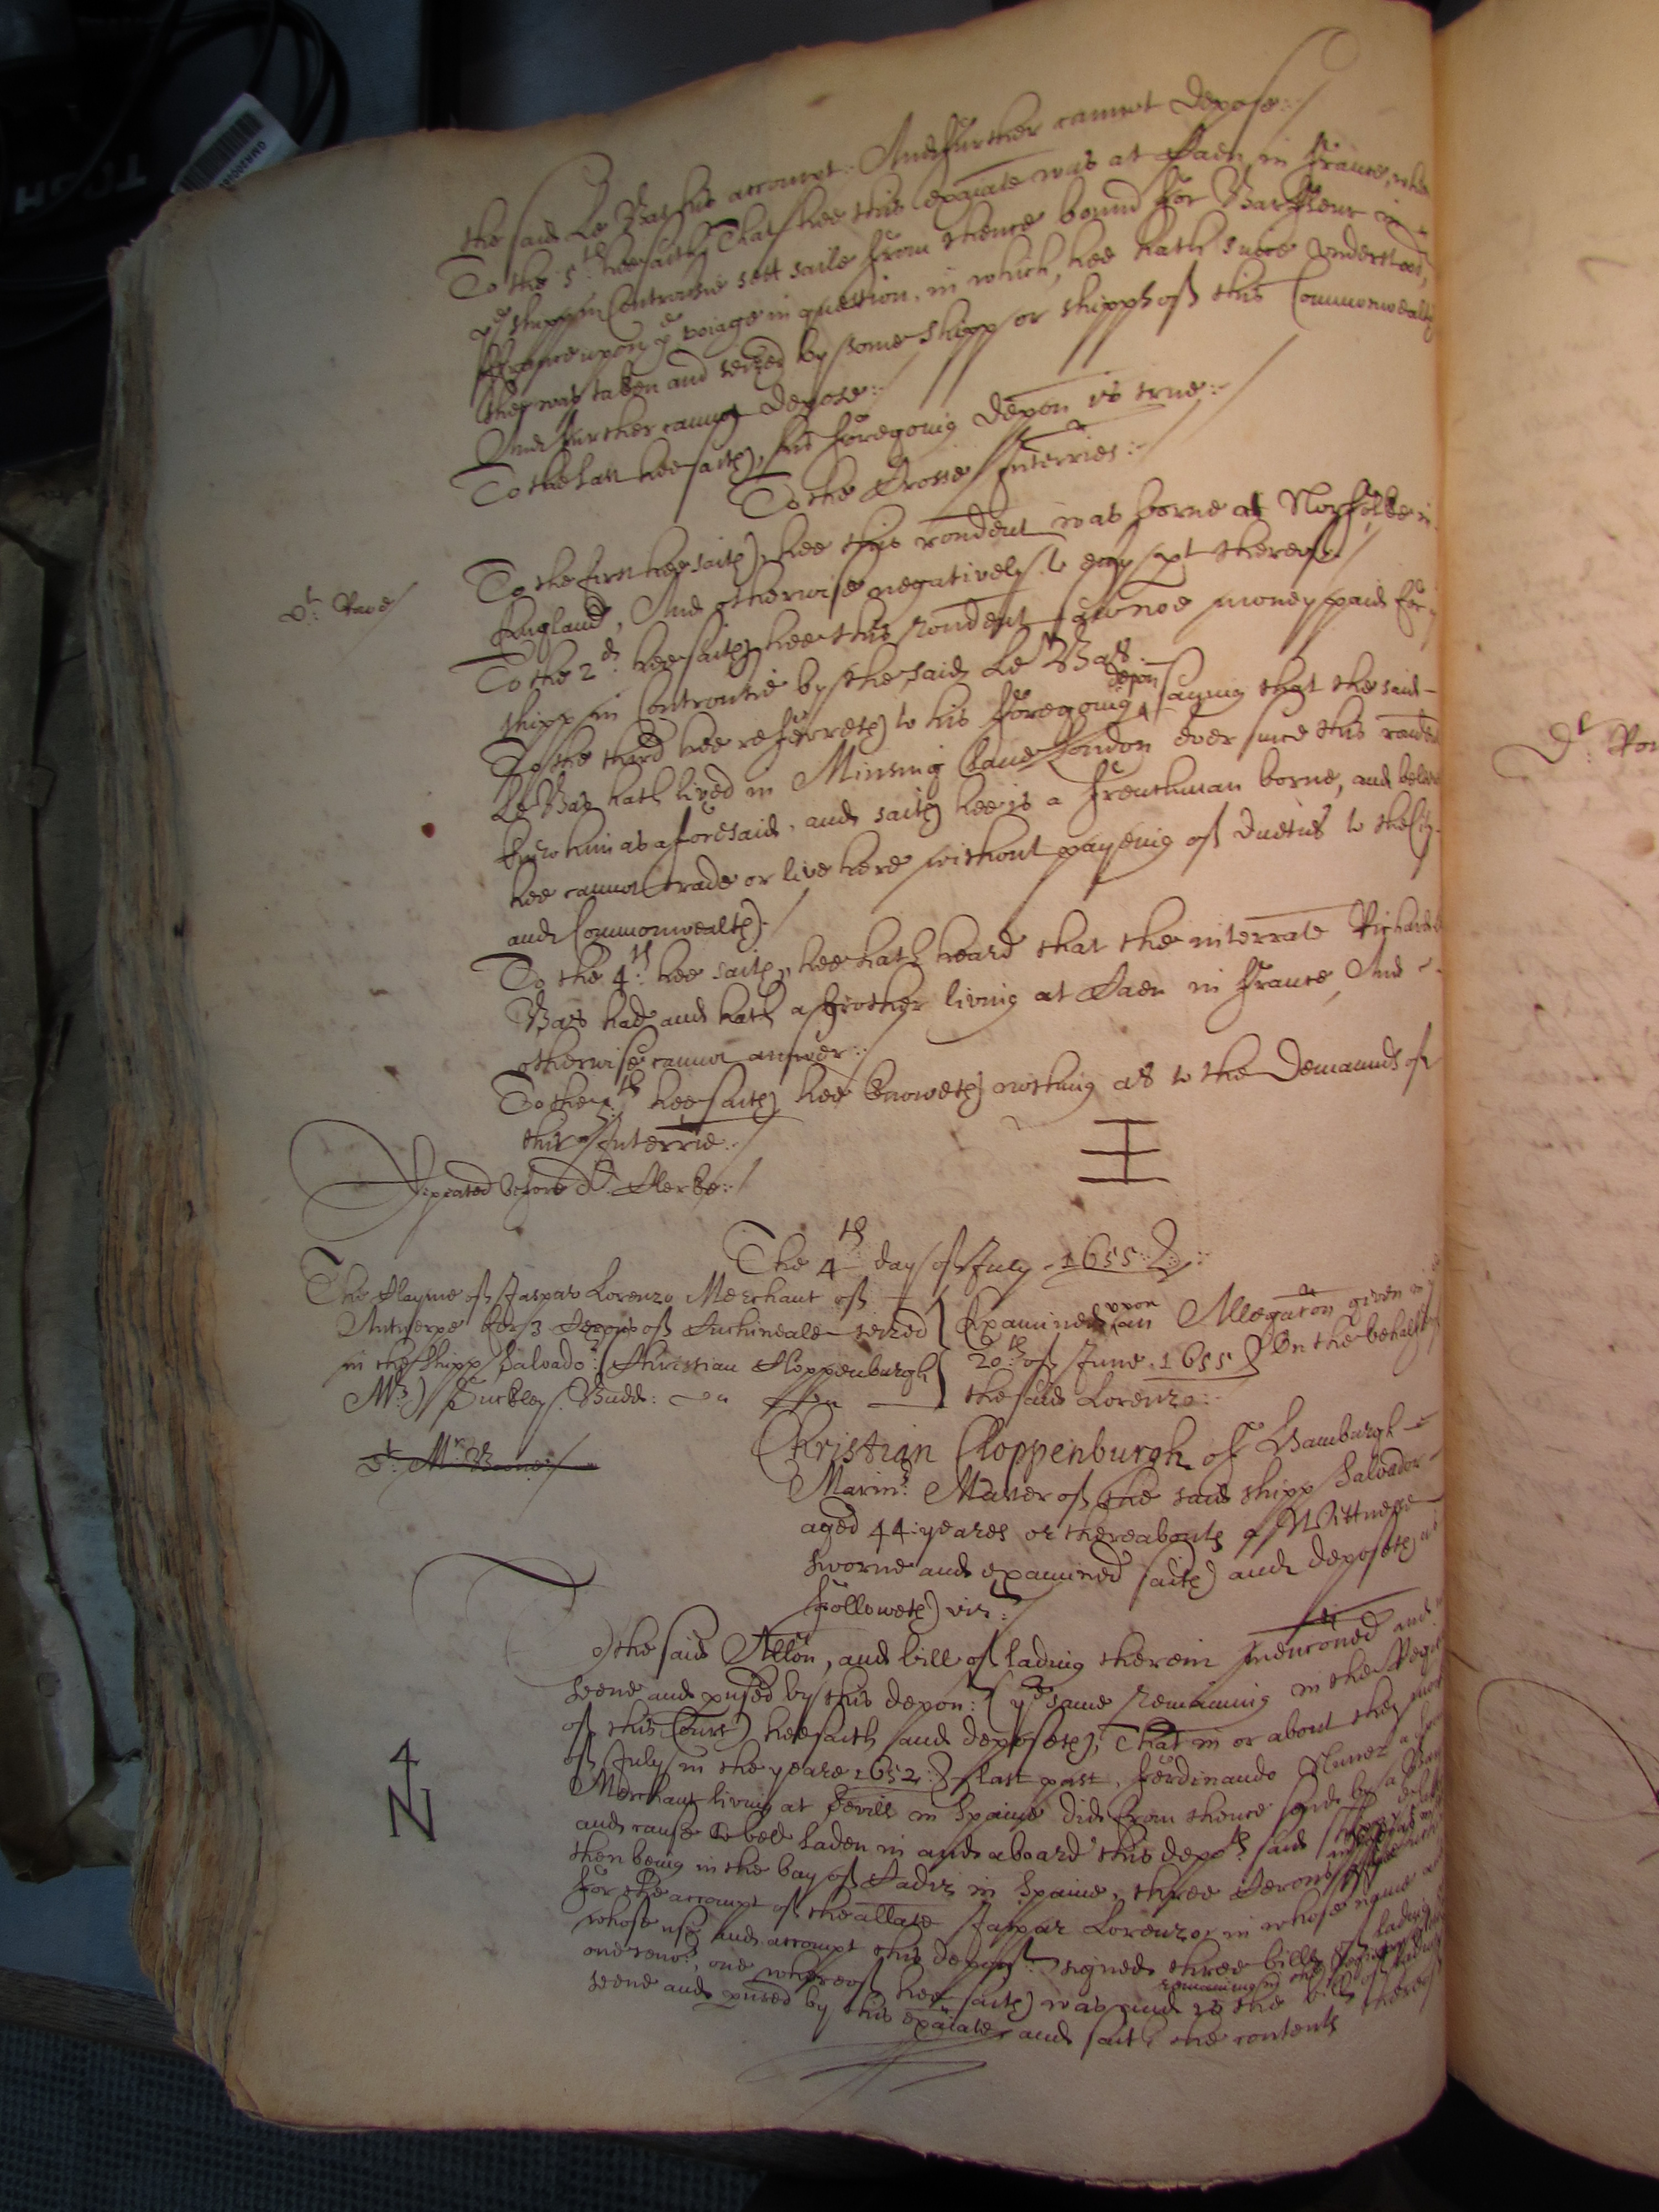 the said Le Bas his accompt. And further cannot depose:/
To the 5th hee saith, That hee this exãiate was at Caen in France, when
ye shipp in Controversie sett saile from thence bound for Barfleur in
ffrance upon ye voiage in question, in which, hee hath since understood,
shee was taken and seized by some shipp or shipps of this Commonwealth
And further cannot depose:/
To the last hee saith, his foregoing depon is true:/
To the Crosse Interries:/
To the first hee saith, hee this rondent was borne at Norfolke in
England, And otherwise negatively to every pt thereof:/
To the 2d: hee saith, hee this rondent saw noe money paid for
shipp in Controversie by the said Le Bas.
To the third hee referreth to his foregoing depon saying that the said
Le Bas hath lived in Minsing lane London ever since this rondent
knew him as aforesaid, and saith hee is a Frenchman borne, and beleeves
hee cannot trade or live here without payeing of duties to the City
and Commonwealth./
To the 4th: hee saith, hee hath heard that the interrate Richard
Bas had and hath a brother living at Caen in France, And
otherwise cannot answer:/
To the hee saith hee knoweth nothing as to the Demaunds of
this Interrie:/
Repeated before dr. Clerke:/
The 4th day of July 1655:
The Clayme of Jaspar Lorenzo Merchant of
Antwerpe for 3 Serons of Cuchineale seized
in the shipp Salvador (Christian Cloppenburgh
Mr) Suckley. Budd:
Examined upon an Allegaton given in ye
20th of June 1655 On the behalfe of
the said Lorenzo:
dr: Mr Boone:/
Christian Cloppenburgh of Hamburgh
Marinr: Master of the said shipp Salvador
aged 44: yeares or thereabouts a Wittnesse
sworne and examined saith and deposeth as
followeth vizt:/
To the said Allon, and bill of lading therein menconed and
seene and pused by this depont: (ye same remaining in the Regi
of this Court) hee saith and deposeth, That in or about the mon
of July in the yeare 1652: last past, Ferdinando Nunez a
Merchant living at Sevill in Spaine did from thence send by a Bar
and cause to bee laden in and aboard this depots: said shipp
then being in the bay of Cadiz in Spaine, three Serons of
for the accompt of the allate Jaspar Lorenzo, in whose name and
whose use and accompt this depont: signed three bills of lading
one tenor, one whereof hee saith was and is the bill of lading
remaining in the
seene and pused by this exãiate, and saith the contents thereof
4
N